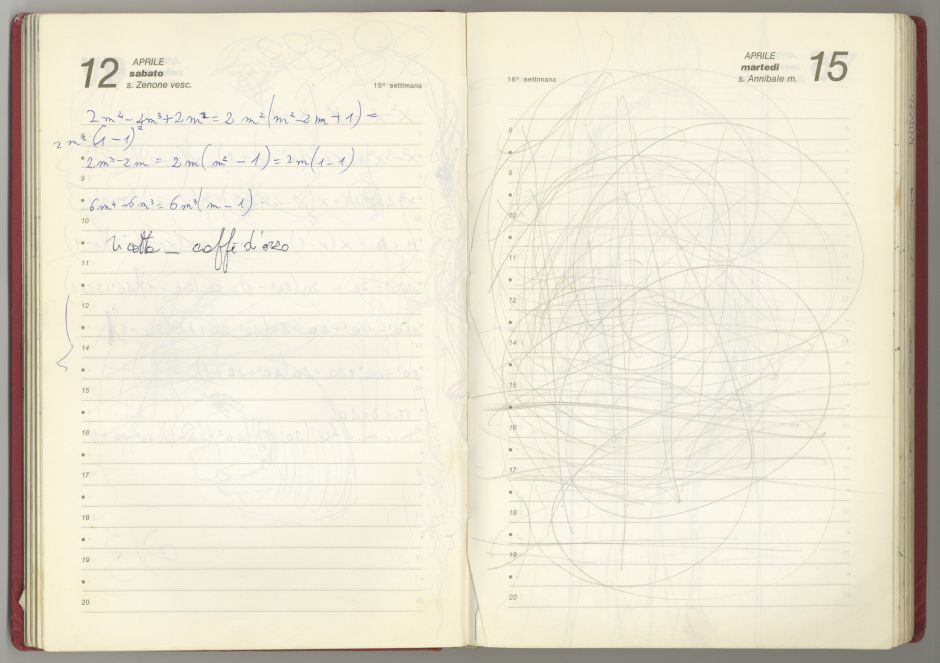 12 APRILE
sabato
s. Zenone vesc.
15ª settimana
2m⁴-4m³+2m² = 2m²(m²-2m+1) =
2m²(1-1)²
2m³-2m = 2m(m²-1) = 2m(1-1)
9
6m⁴-6m³ = 6m³(m-1).
10
ricotta - caffè d'orzo
11
12
14
15
16
17
18
19
20
APRILE 15
martedì
s. Annibale m.
16ª settimana
8
9
10
11
12
14
15
16
17
18
19
20